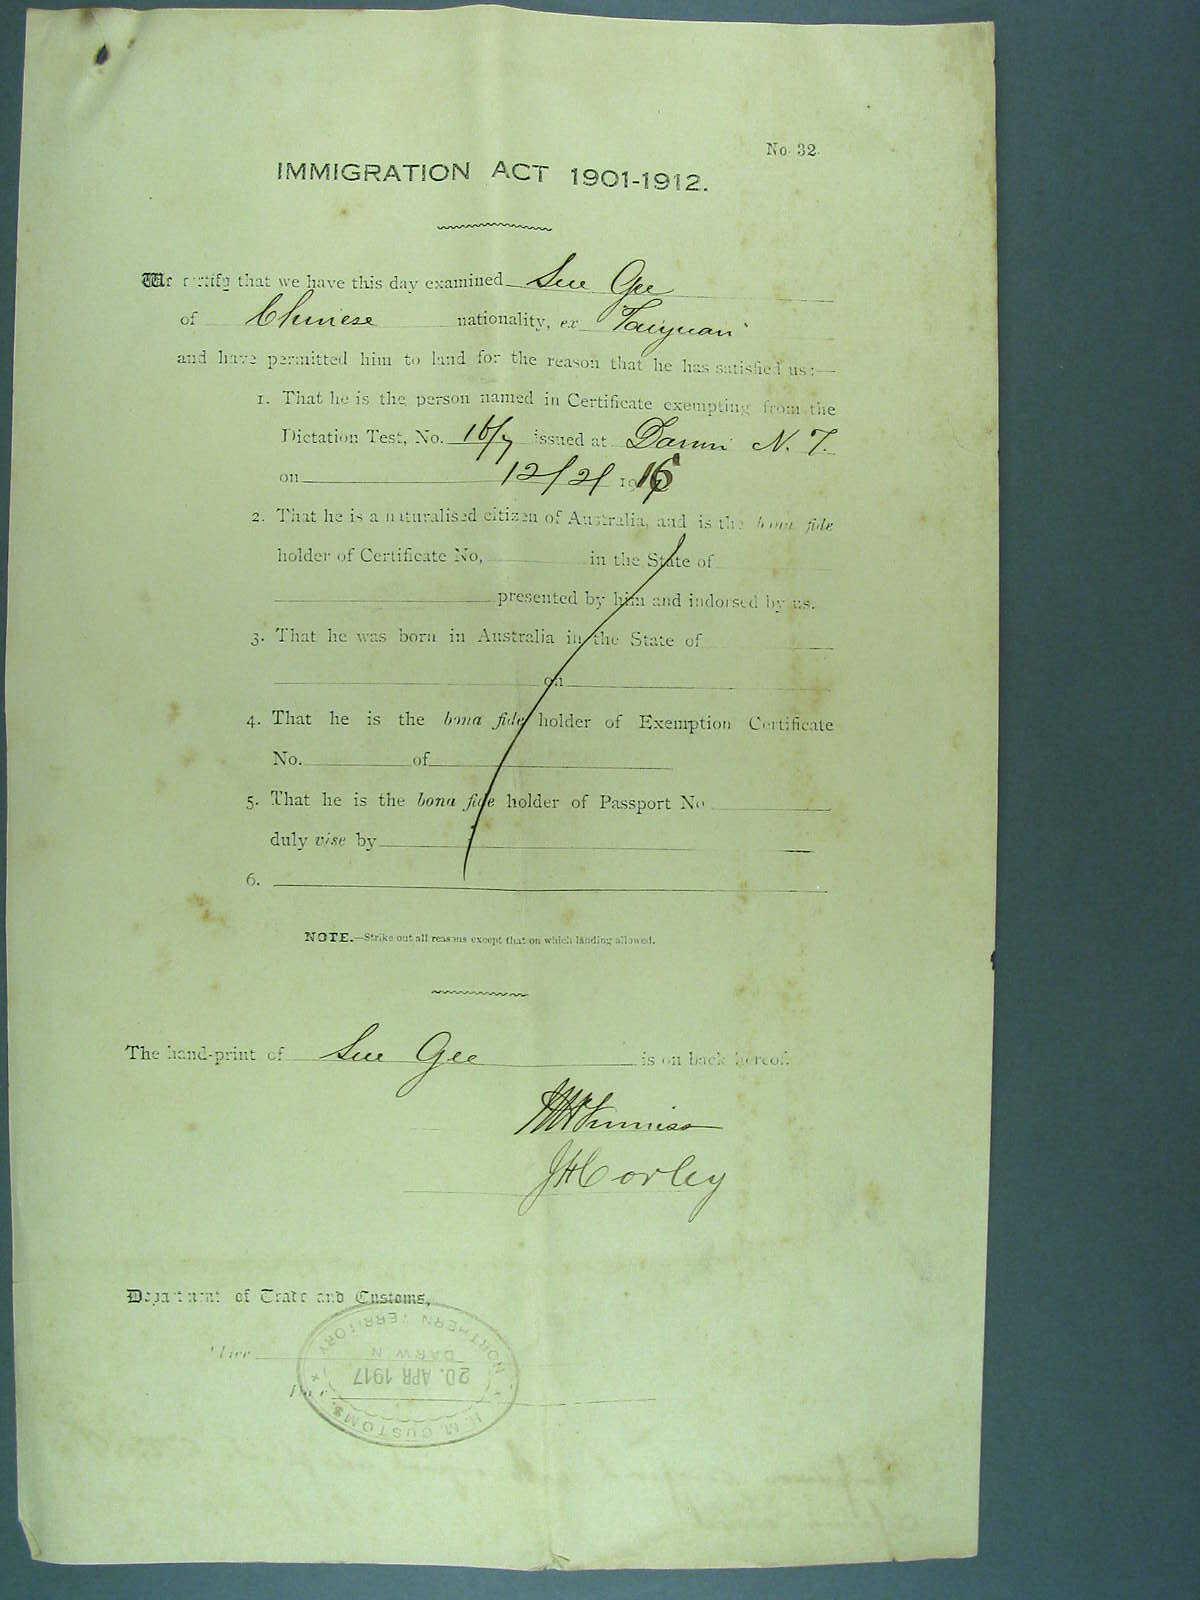 No. 32.
IMMIGRATION ACT 1901-1912.
We certify that we have this day examined Sue Gee
of Chinese nationality, ex "Taiyuan"
and have permitted him to land for the reason that he has satisfied us:—
1. That he is the person named in Certificate exempting from the
Dictation Test, No. 16/7 issued at Darwin N. T.
on 12/2/ 1916
2. That he is a naturalised citizen of Australia, and is the bona fide
holder of Certificate No, in the State of
presented by him and indorsed by us.
3. That he was born in Australia in the State of
on
4. That he is the bona fide holder of Exemption Certificate
No. of
5. That he is the bona fide holder of Passport No
duly vise by
6.
NOTE.—Strike out all reasons except that on which landing allowed.
The hand-print of Sue Gee is on back hereof.
JHCorley
Department of Trade and Customs,
Place
Date
H. M. CUSTOMS.
20. APR 1917
DARWIN
NORTHERN TERRITORY